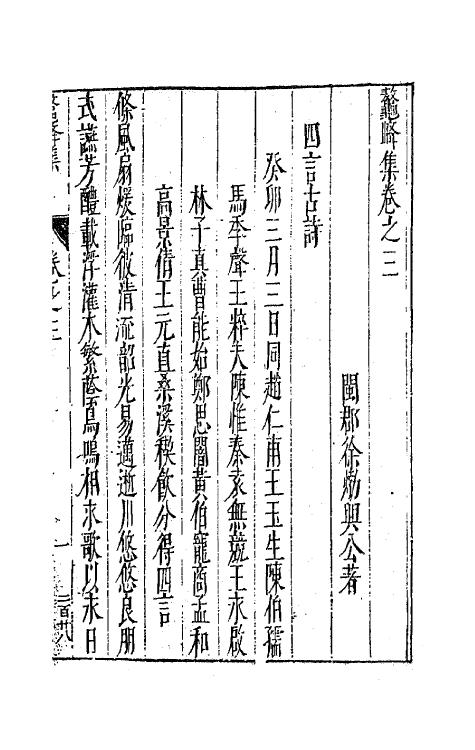 鼇峰集卷之三
閩郡徐𤊹興公著
四言古詩
癸卯三月三日同趙仁甫王玉生陳伯孺
馬季聲王粹夫陳惟秦袁無競王永啟
林子真曹能始鄭思闇黃伯寵商孟和
高景倩王元直桑溪稧飲分得四言
條風扇煖臨彼清流韶光易邁逝川悠悠良朋
式讌芳醴載浮灌木繁蔭鳥鳴相求歌以永日
鼇峰集 卷之三 一